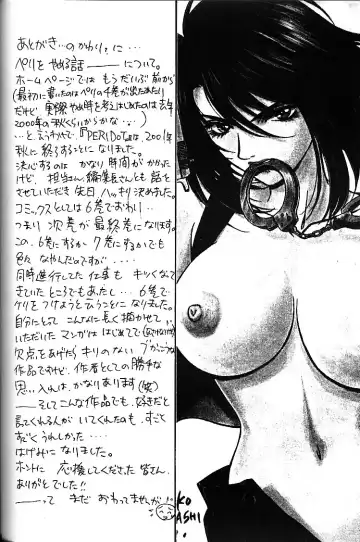 あとがき…のかわりに…
ペリをやめる話──について。
ホームページではもうだいぶ前から
(最初に書いたのはペリの4巻が出たあたり)
だけど実際やめ時を考えはじめたのは去年
2000年の秋くらいからかな…)
…と言うわけで『PERIDOT』は2001年
秋に終了することになりました。
決心するのはかなり時間がかかった
けど、担当さん、編集長さんとも話を
させていただき先日ハッキリ決めました。
コミックスとしては6巻でおわり…
つまり次巻が最終巻になります。
この、6巻にするか7巻にするかでも
色々なやんだのですが…
同時進行してた仕事もキツくなって
きていたところでもあたし…6巻で
ケリをつけようと云うことになりました。
自分にとってこんなに長く描かせて
いただいたマンガははじめてで
欠点をあげたらキリのないぶかっこうな
作品ですけど、作者としての勝手な
思い入れは、かなりあります(笑)
──そしてこんな作品でも、好きだと
言ってくれる人がいてくれたのも、すごく
すごくうれしかった…
はげみになりました。
ホントに応援してくださった皆さん、
ありがとでした!!
──ってまだおわってませんが
KO
ASHI